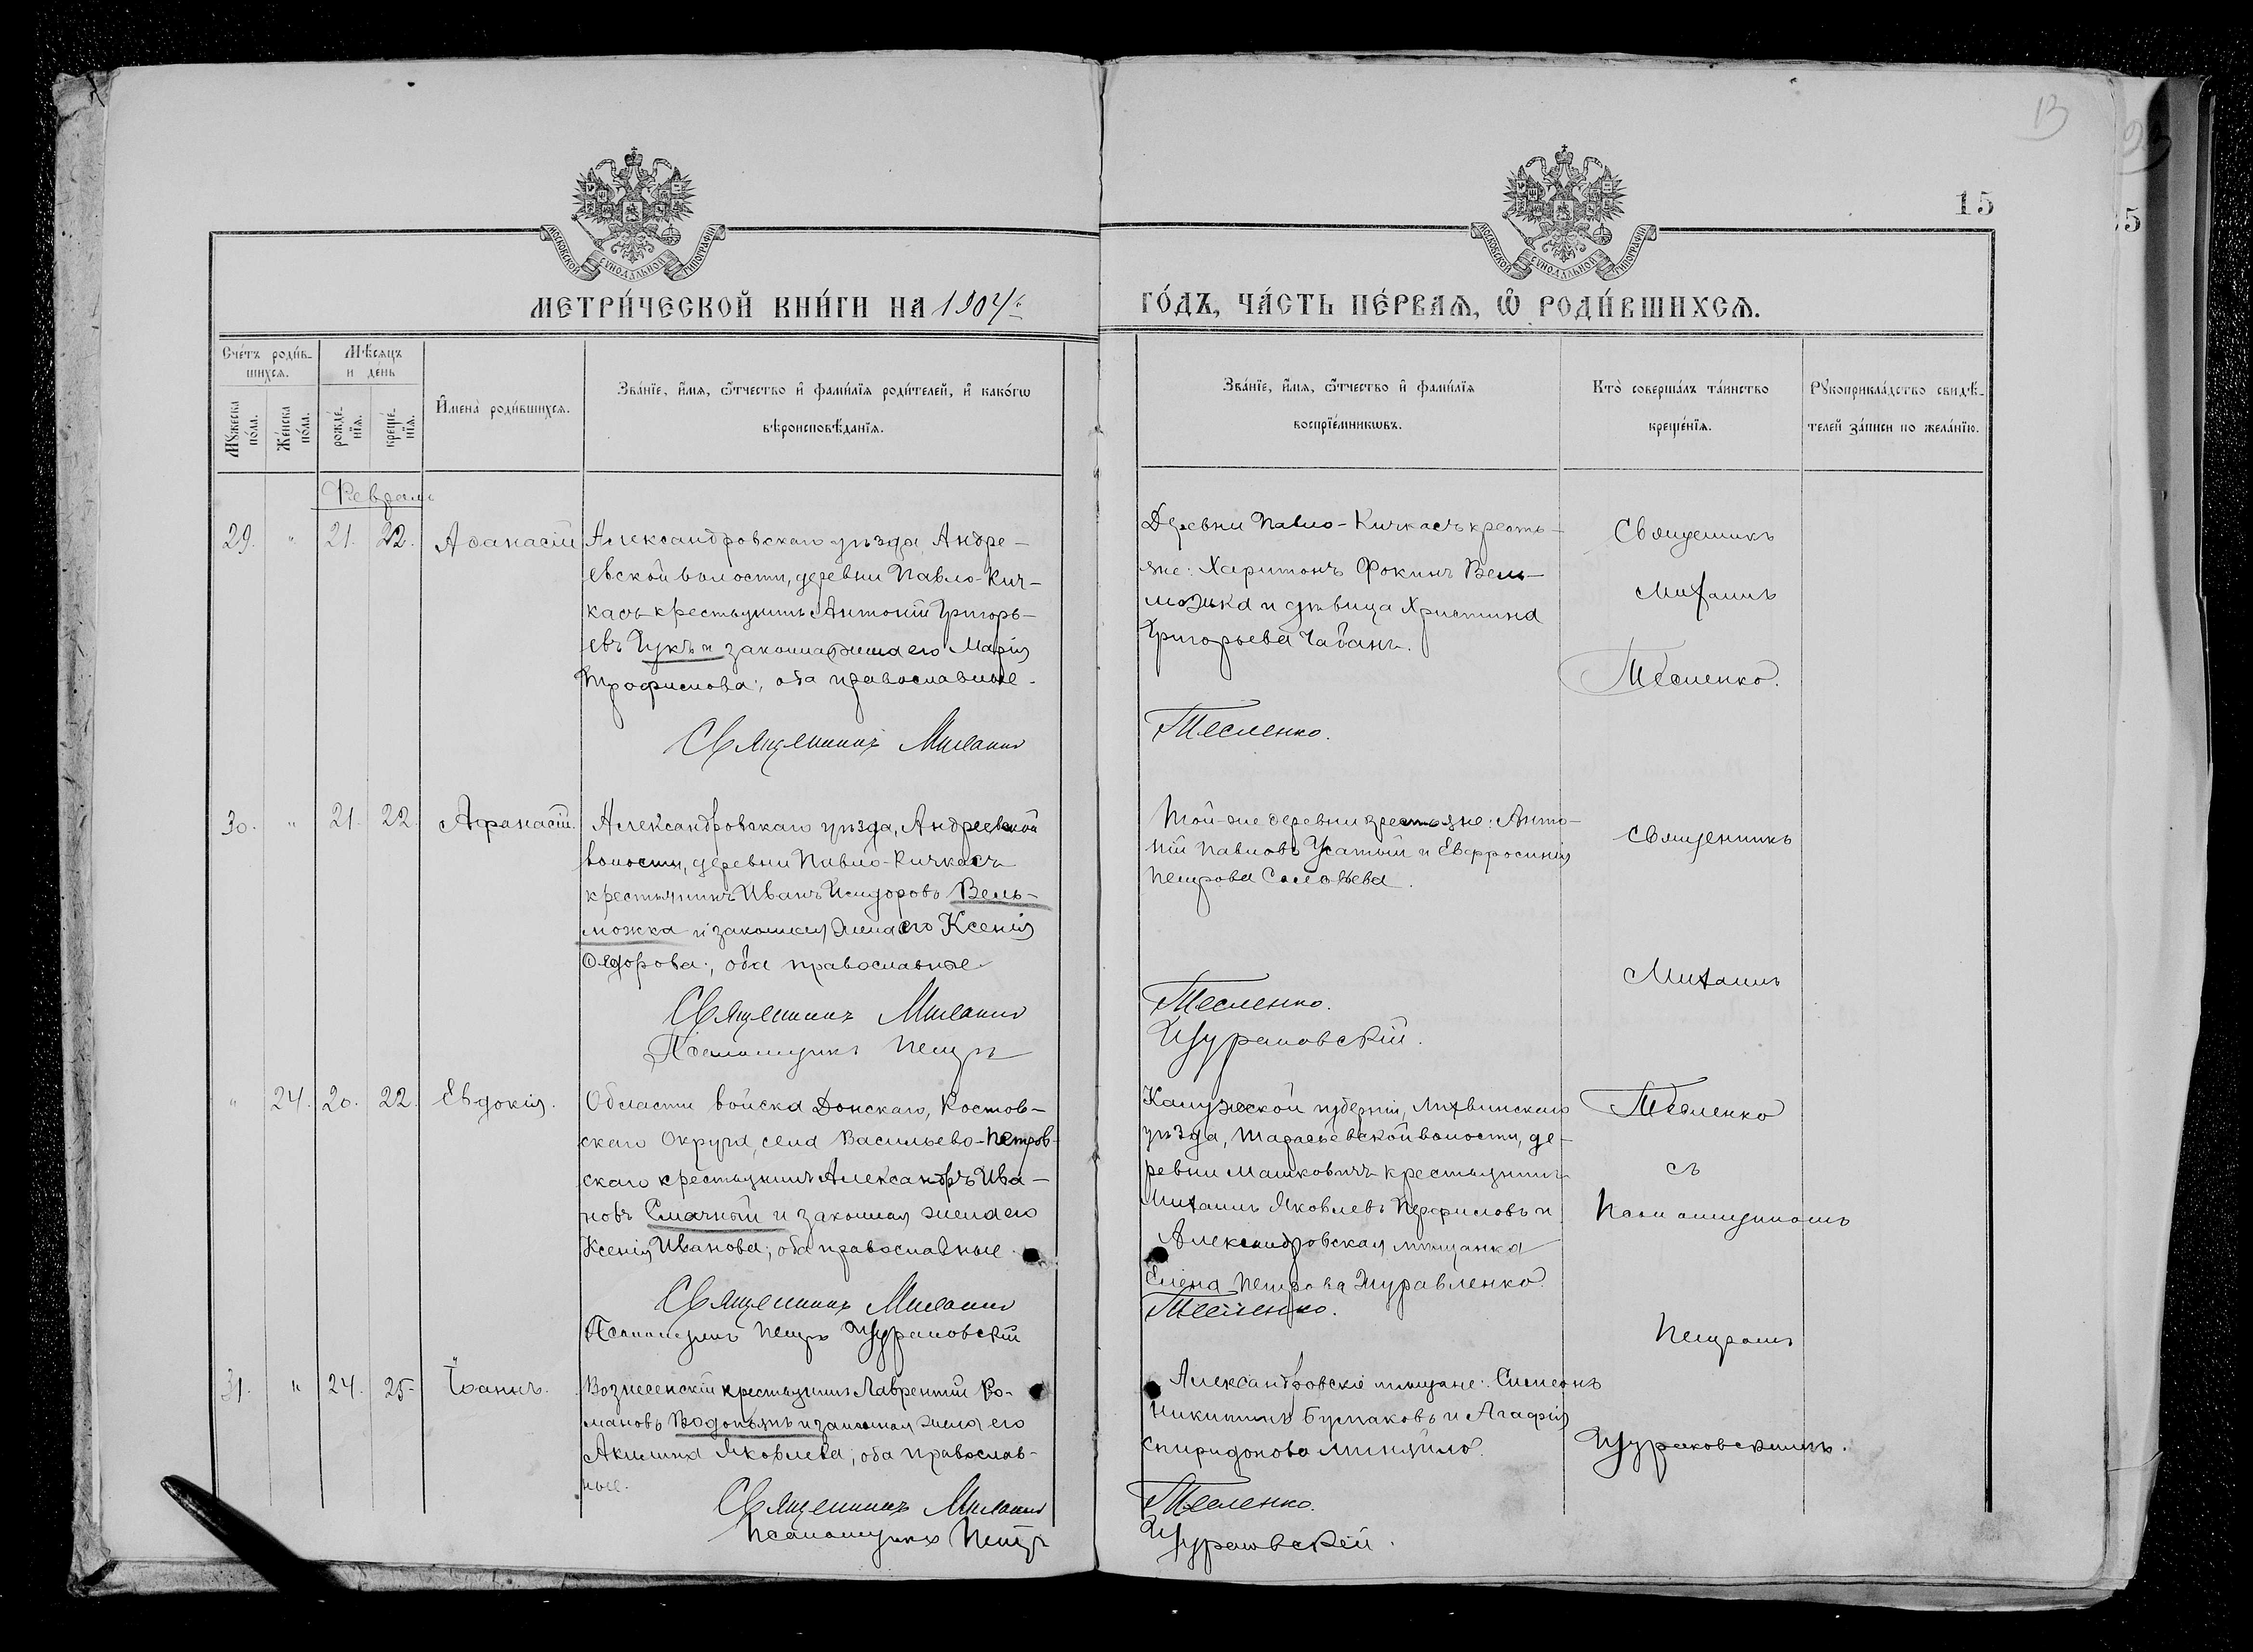 13
15
МОСКОВСКОЙ СѴНОДАЛЬНОЙ ТИПОГРАФІИ
МОСКОВСКОЙ СѴНОДАЛЬНОЙ ТИПОГРАФІИ
МЕТРИ́ЧЕСКОЙ КНИ́ГИ НА 1904й
ГО́ДЪ, ЧА́СТЬ ПЕ́РВАѦ, Ѽ РОДИ́ВШИХСѦ.
Сче́тъ роди́в-
шихсѧ.
Мѣ́сѧцъ
и де́нь
Мꙋ́жеска
по́ла.
Же́нска
по́ла.
рожде́-
нїѧ.
креще́-
нїѧ.
И҆мена̀ роди́вшихсѧ.
Зва́нїе, и҆́мѧ, ѻ҆́тчество и҆ фами́лїѧ роди́телей, и҆ како́гѡ
вѣроисповѣ́данїѧ.
Зва́нїе, и҆́мѧ, ѻ҆́тчество и҆ фами́лїѧ
воспрїе́мникѡвъ.
Кто̀ соверша́лъ та́инство
креще́нїѧ.
Рꙋкоприкла́дство свидѣ́-
телей за́писи по жела́нїю.
Февраль
29. " 21. 22. Аѳанасій
Александровскаго уѣзда, Андре-
евской волости, деревни Павло-Кич-
касъ крестьянинъ Антоній Григорь-
евъ Гукъ и законная жена его Марія
Трофимова; оба православные.
Священникъ Михаилъ
Деревни Павло-Кичкасъ кресть-
яне: Харитонъ Фокинъ Вель-
можка и дѣвица Христина
Григорьева Чабанъ.
Тесленко.
Священникъ
Михаилъ
Тесленко.
30. " 21. 22. Афанасій.
Александровскаго уѣзда, Андреевской
волости, деревни Павло-Кичкасъ
крестьянинъ Иванъ Исидоровъ Вель-
можка и законная жена его Ксенія
Ѳедорова; оба православные.
Священникъ Михаилъ
Псаломщикъ Петръ
Той-же деревни крестьяне: Анто-
ній Павловъ Усатый и Евфросинія
Петрова Соловьева.
Тесленко.
Щурановскій.
Священникъ
Михаилъ
" 24. 20. 22. Евдокія.
Области войска Донскаго, Ростов-
скаго Округа, села Васильево-Петров-
скаго крестьянинъ Александръ Ива-
новъ Смачный и законная жена его
Ксенія Иванова; оба православные.
Священникъ Михаилъ
Псаломщикъ Петръ Щурановскій
Калужской губерніи, Лихвинскаго
уѣзда, волости, де-
ревни Машковичъ крестьянинъ
Михаилъ Яковлевъ Перфиловъ и
Александровская мѣщанка
Елена Петрова Журавленко.
Тесленко.
Тесленко
съ
Псаломщикомъ
Петромъ
31. " 24. 25. Іоаннъ.
Вознесенскій крестьянинъ Лаврентій Ро-
мановъ Водопьянъ и законная жена его
Акилина Яковлева; оба православ-
ные.
Священникъ Михаилъ
Псаломщикъ Петръ
Александровскіе мѣщане: Симеонъ
Никитинъ Бурлаковъ и Агафія
Спиридонова
Тесленко.
Щурановскій.
Щурановскимъ.